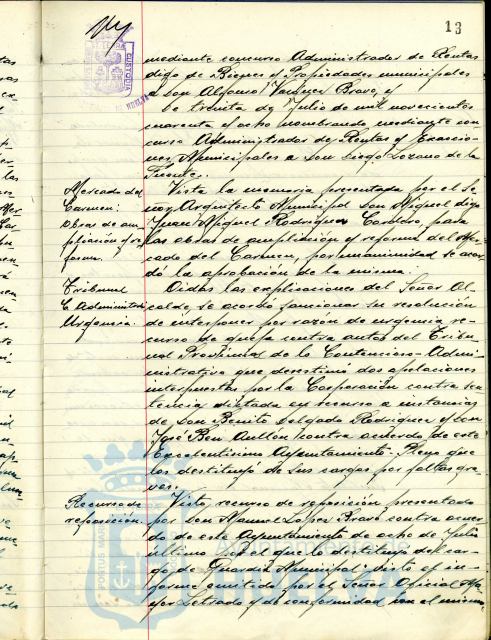 13
mediante concurso Administrador de Rentas
digo de Bienes y Propiedades municipales
a don Alfonso Bravo, y
treinta de Julio de mil novecientos
cuarenta y ocho nombrando mediante con
curso Administrador de Rentas y Exaccio-
nes Municipales a don Diego Lozano de la
Fuente.
Mercado del
Carmen:
obras de am-
pliación y re-
forma.
Vista la memoria presentada por el Se-
ñor Arquitecto Municipal don Miguel digo
Juan Miguel Rodriguez Cordero, para
las obras de ampliación y reforma del Mer-
cado del Carmen, por unanimidad se acor-
dó la aprobación de la misma.
Tribunal
C. Administrativo
Urgencia.
Oidas las explicaciones del Señor Al-
calde se acordó sancionar su resolución
de interponer por razón de urgencia re-
curso de queja contra autos del Tribu-
nal Provincial de lo Contencioso-Admi-
nistrativo que desestimó dos apelaciones
interpuestas por la Corporación contra sen-
tencia dictada en recurso a instancias
de don Benito Delgado Rodriguez y don
José Ben Aullon contra acuerdo de este
Excelentisimo Ayuntamiento Pleno que
los destituyó de sus cargos por faltas gra-
ves.
Recurso de
reposición.
Visto recurso de reposición presentado
por don Manuel Lopez Bravo contra acuer-
do de este Ayuntamiento de ocho de Julio
último por el que lo destituyó del car-
go de Guardia Municipal; visto el in-
forme emitido por el Señor Oficial Ma-
yor Letrado y de conformidad con el mismo
CUSTODIA
HUELVA
PORTUS MARIS
Ayuntamiento de
HUELVA